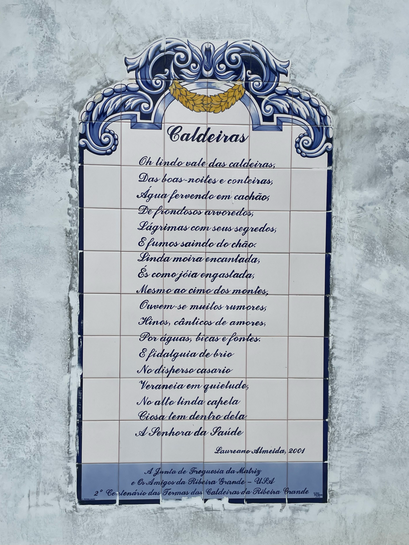 Caldeiras
Oh lindo vale das caldeiras,
Das boas-noites e conteiras,
Água fervendo em cachão,
De frondosos arvoredos,
Lágrimas com seus segredos,
E fumos saindo do chão.
Linda moira encantada,
És como jóia engastada,
Mesmo ao cimo dos montes,
Ouvem-se muitos rumores,
Hinos, cânticos de amores,
Por águas, bicas e fontes.
E fidalguia de brio
No disperso casario
Veraneia em quietude,
No alto linda capela
Ciosa tem dentro dela
A Senhora da Saúde
Laureano Almeida, 2001
A Junta de Freguesia da Matriz
e Os Amigos da Ribeira Grande -
2º Centenário das Termas das Caldeiras da Ribeira Grande